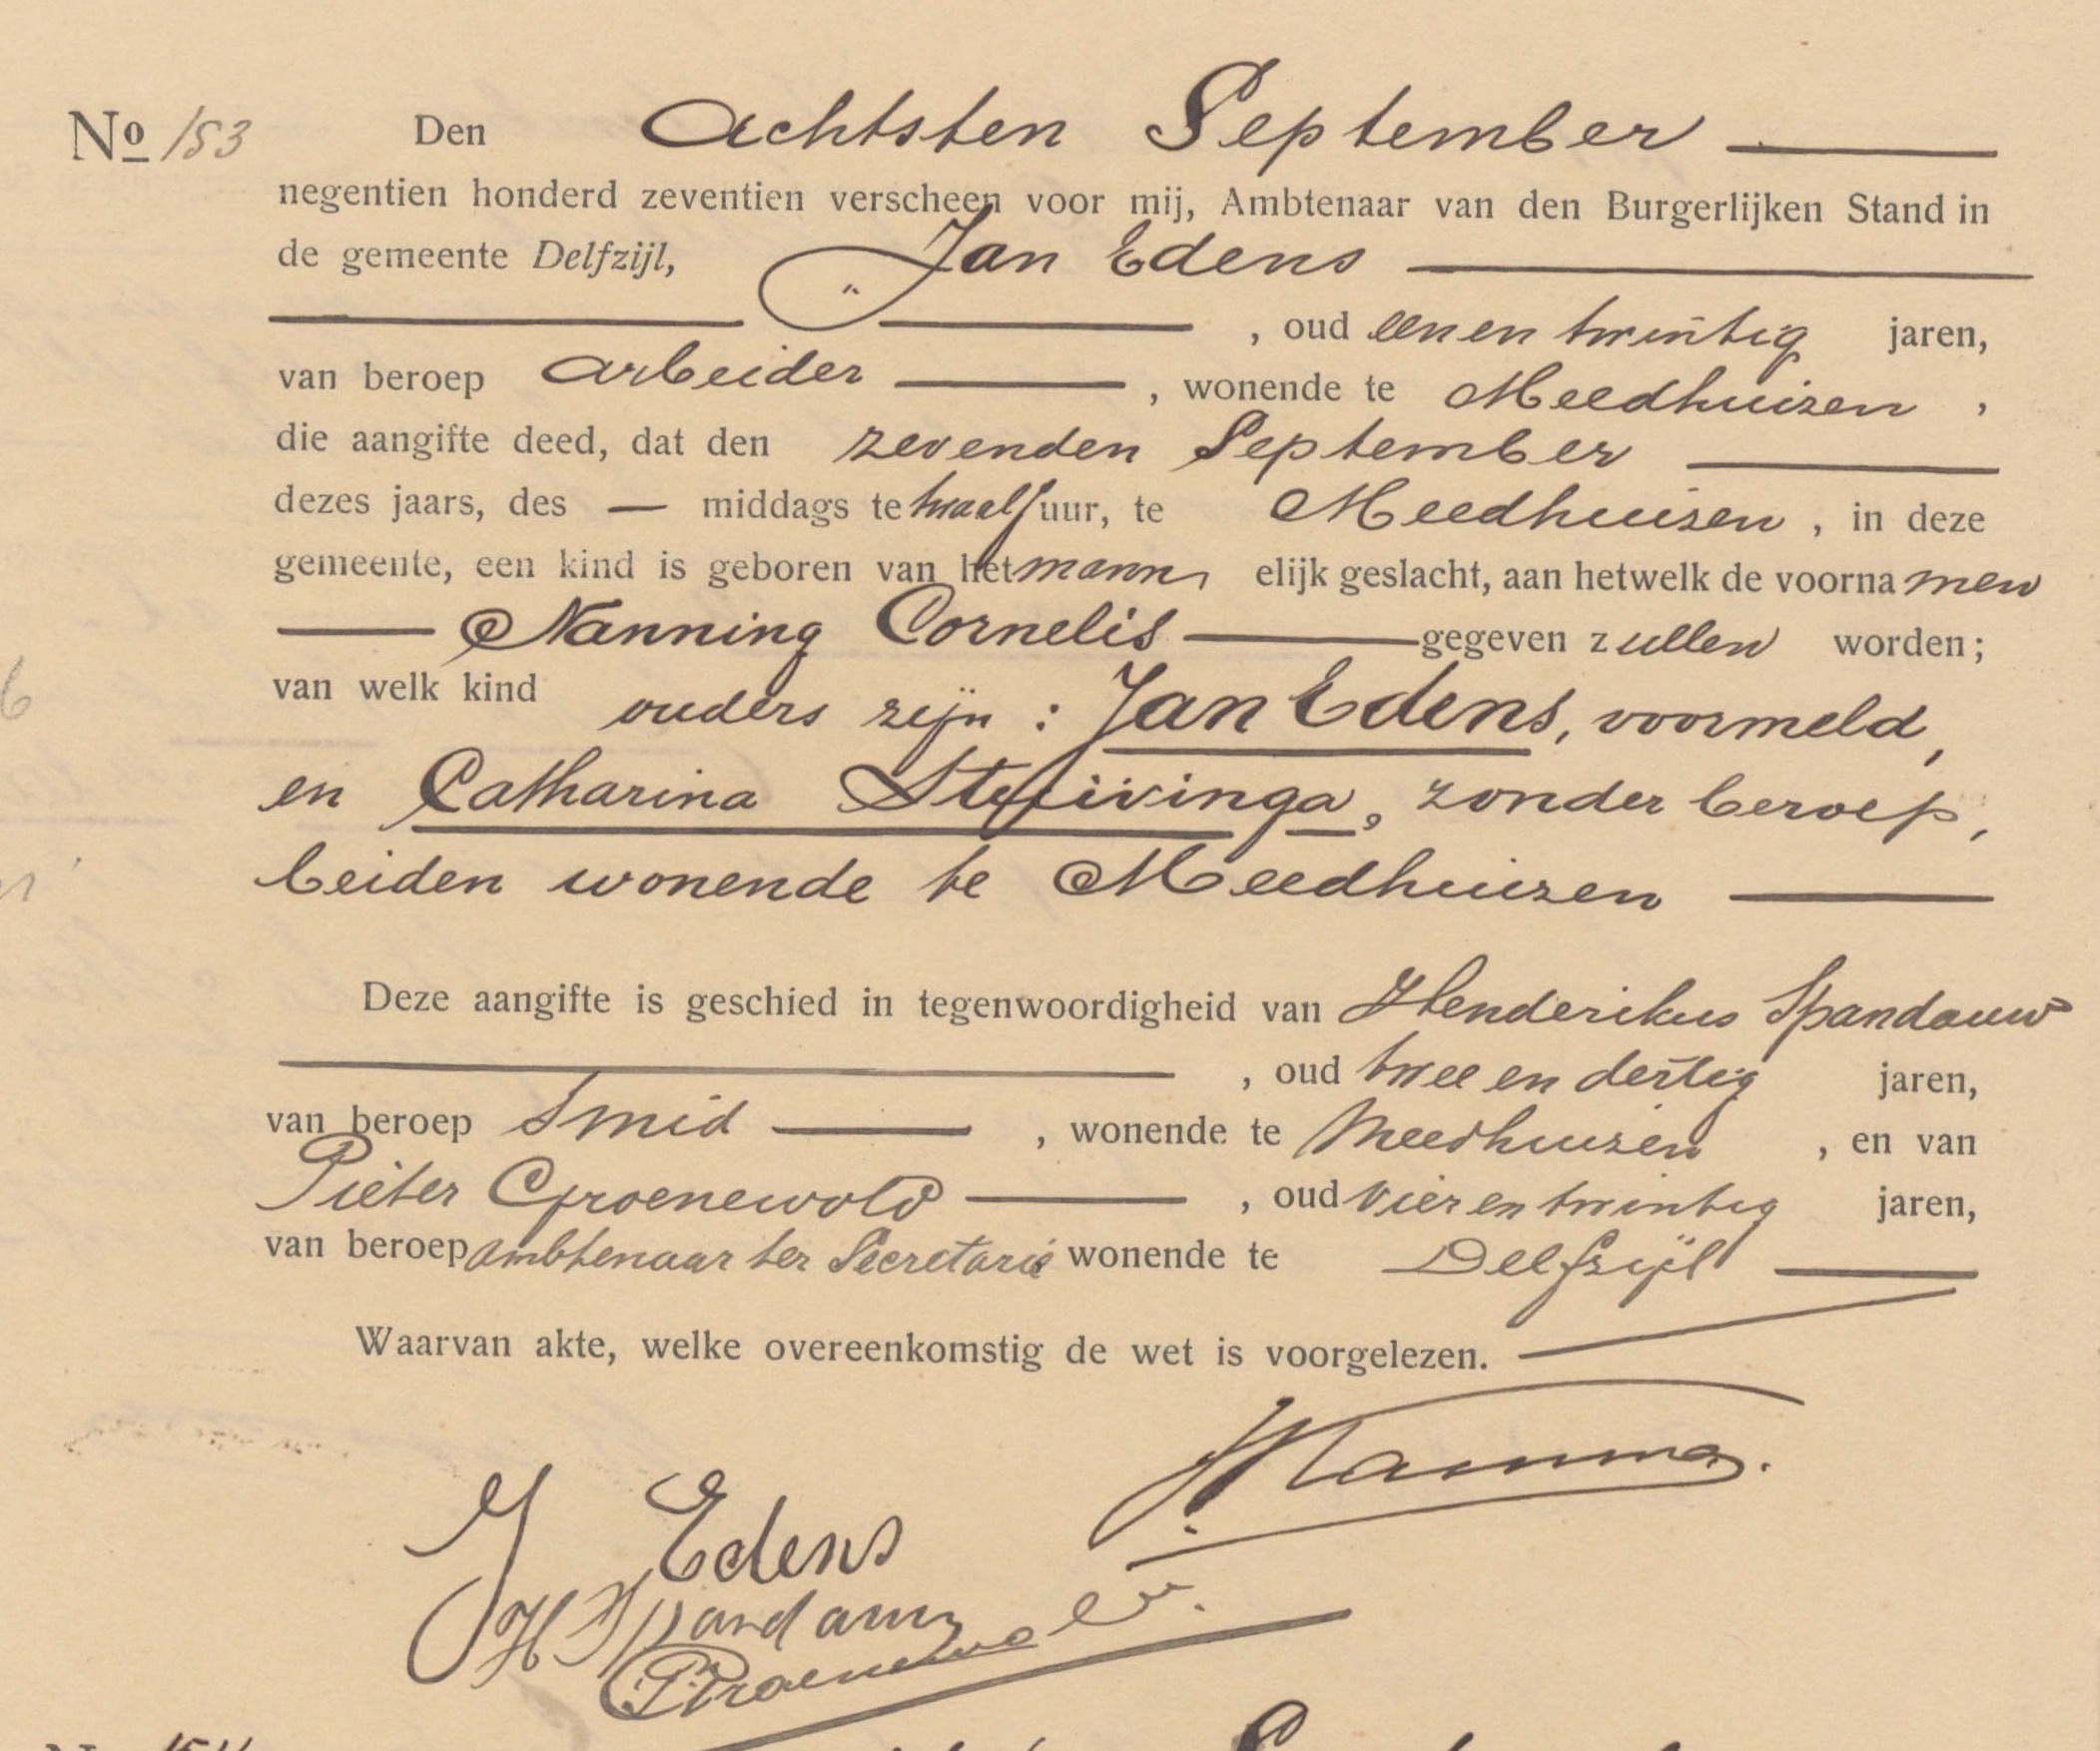 No 153 Den Achtsten September
negentien honderd zeventien verscheen voor mij, Ambtenaar van den Burgerlijken Stand in
de gemeente Delfzijl, Jan Edens
, oud eenen twintig jaren,
van beroep arbeider , wonende te Meedhuizen ,
die aangifte deed, dat den zevenden September
dezes jaars, des — middags te twaalf uur, te Meedhuizen , in deze
gemeente, een kind is geboren van het mann elijk geslacht, aan hetwelk de voorna men
Nanning Cornelis gegeven z ullen worden;
van welk kind ouders zijn : Jan Edens, voormeld,
en Catharina , zonder beroep,
beiden wonende te Meedhuizen
Deze aangifte is geschied in tegenwoordigheid van Henderikus Spandauw
, oud twee en dertig jaren,
van beroep Smid , wonende te Meedhuizen , en van
Pieter Groenewold , oud vier en twintig jaren,
van beroep ambtenaar ter Secretarie wonende te Delfzijl
Waarvan akte, welke overeenkomstig de wet is voorgelezen.
J Edens
H Spandauw
PGroenewold.